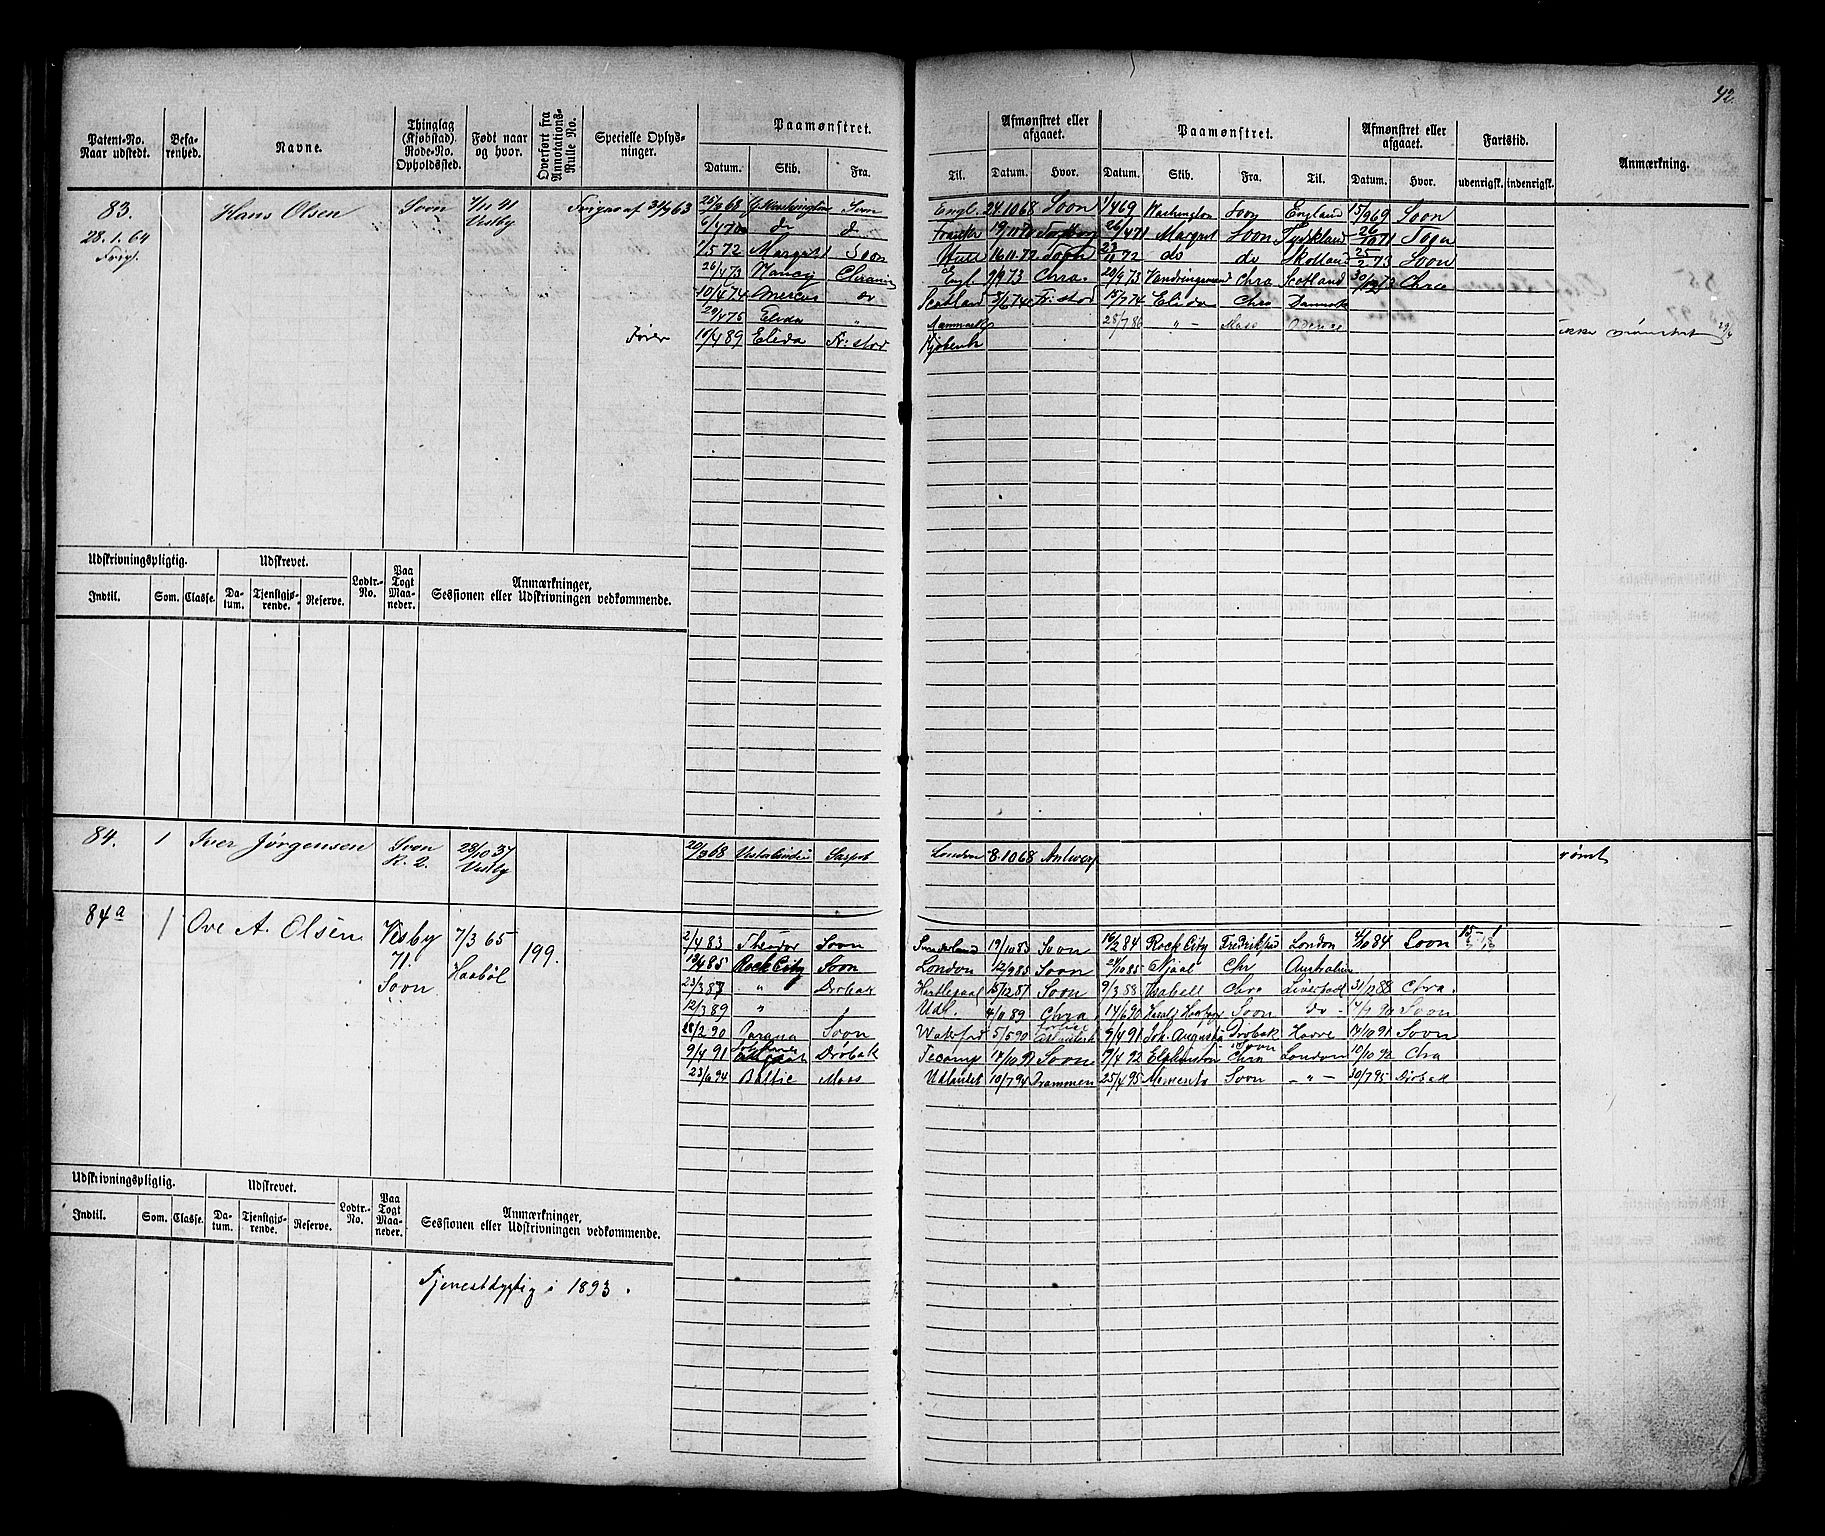 42.
Patent-No. Naar udstedt.
Befarenhed.
Navne.
Thinglag (Kjøbstad). Rode-No. Opholdssted.
Født naar og hvor.
Overført fra Annotations-Rulle No.
Specielle Oplysninger.
Paamønstret.
Datum. Skib. Fra.
Til.
Afmønstret eller afgaaet.
Datum. Hvor.
Paamønstret.
Datum. Skib. Fra. Til.
Afmønstret eller afgaaet.
Datum. Hvor.
Fartstid.
udenrigsk. indenrigsk.
Anmærkning.
83. Hans Olsen Soon 7/11 41
28.1.64 Vestby
Frig.
25/3 68 Washington Soon Engl. 24.10 68 Soon 1/4 69 Washington Soon England 15/9 69 Soon
6/4 70 do do 19/11 70 26/4 71 Margret Soon Tydskland 26/10 71
1/5 72 Margret Soon Hull 16.11.72 do do Skotland 25/2 73 Soon
26/4 73 Nancy Engl. 73 Chra. 29/9 73 Chra Scotland 30/12 73 Chra
10/4 74 do Scotland 74 Fr:stad 15/7 74 Elida Chra Danmark
29/4 75 Elida " Danmark 28/7 86 " — Moss
Fører 10/4 89 Elida Fr:stad Kjøbenh ikke mønstret
Udskrivningspligtig. Udskrevet. Lodtr.-No. Paa Togt Maaneder. Anmærkninger, Sessionen eller Udskrivningen vedkommende.
Indtil. Som. Classe. Datum. Tjenstgjørende. Reserve.
84. 1 Iver Jørgensen Soon 28/10 37 20/3 68 London 8.10 68 Antwerp rømt
R. 2. Vestby
84a 1 Ove A. Olsen Vesby 7/3 65 199.
71. Haabøl
Soon
2/4 83 Theodor Soon Sunderland 19/10 83 Soon 16/2 84 Rock City Fredrikstad London 4/10 84 Soon
13/4 85 Rock City Soon London 12/9 85 Soon 24/10 85 Njaal Chr Australien
23/3 87 " Drøbak Hartlepool 15/12 87 Soon 9/3 88 Isabell Chra 31/12 88 Chra.
12/3 89 " Udl. 4/10 89 Chra 14/6 90 Soon do - 90 Soon
28/2 90 Parana Soon Waterford 5/5 90 9/4 91 Joh. Augusta Drøbak Havre 14/10 91 Soon
9/4 91 Drøbak Fecamp 14/10 91 Soon 9/4 92 Soon Chra London 10/10 92 Chra
23/6 94 Baltic Moss Udlandet 10/7 94 Drammen 25/4 95 Memento Soon — " — 30/7 95 Drøbak
Udskrivningspligtig. Udskrevet. Lodtr.-No. Paa Togt Maaneder. Anmærkninger, Sessionen eller Udskrivningen vedkommende.
Indtil. Som. Classe. Datum. Tjenstgjørende. Reserve.
Tjenestdygtig i 1893.